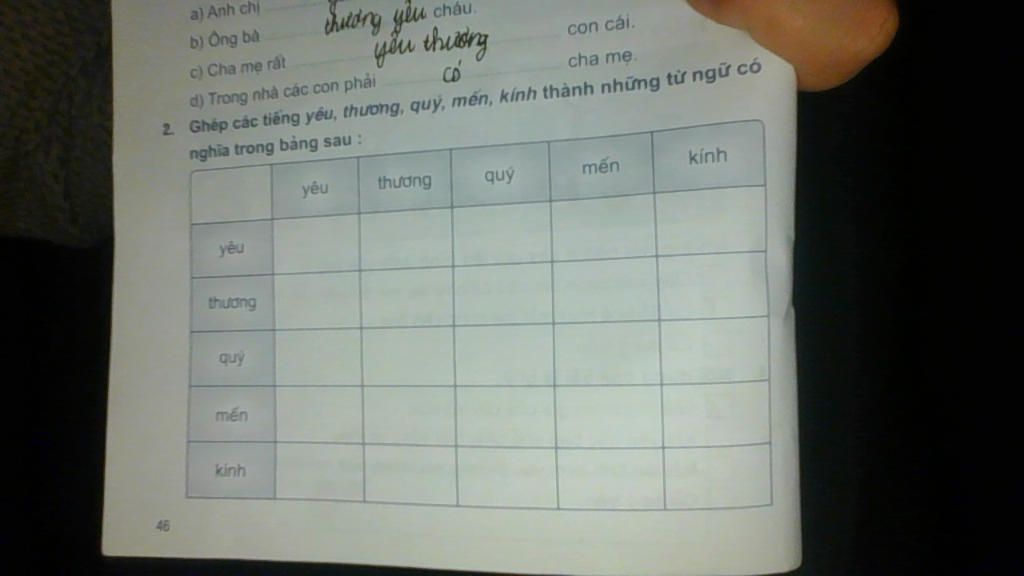 a) Anh chị
b) Ông bà thương yêu cháu.
c) Cha mẹ rất yêu thương con cái.
d) Trong nhà các con phải có cha mẹ.
2. Ghép các tiếng yêu, thương, quý, mến, kính thành những từ ngữ có
nghĩa trong bảng sau :
yêu thương quý mến kính
yêu
thương
quý
mến
kính
46